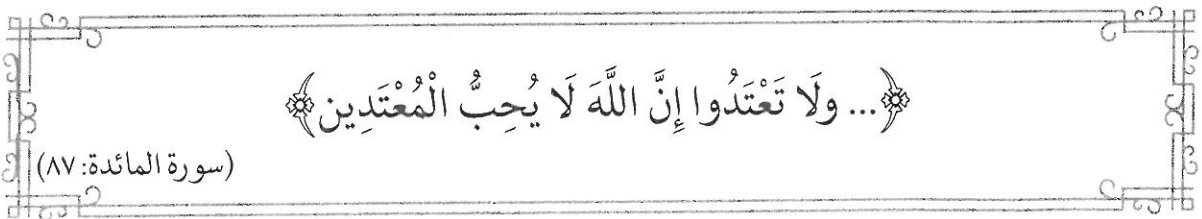 ﴿... ولَا تَعْتَدُوا إِنَّ اللَّهَ لَا يُحِبُّ الْمُعْتَدِين﴾
(سورة المائدة: ٨٧)